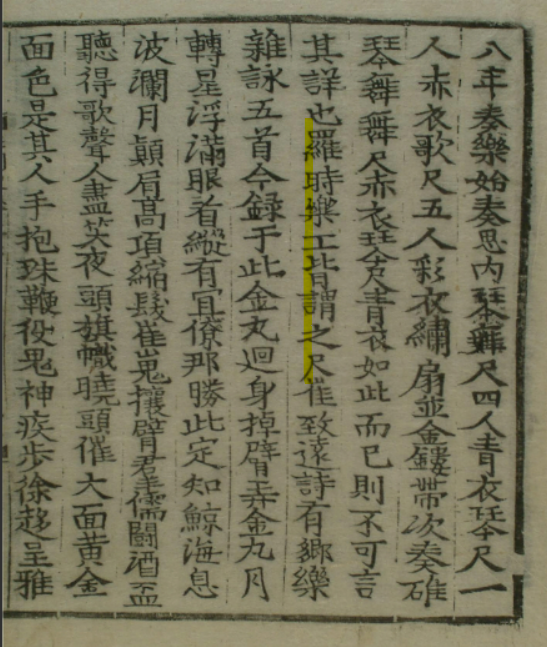 八年奏樂始奏思内琴舞尺四人青衣琴尺一
人赤衣歌尺五人彩衣繡扇並金鏤帶次奏碓
琴舞舞尺赤衣琴尺青衣如此而已則不可言
其詳也羅時樂工皆謂之尺崔致遠詩有鄉樂
雜詠五首今録于此金丸迴身掉臂弄金丸月
轉星浮滿眼看縱有宜僚那勝此定知鯨海息
波瀾月顛肩髙項縮髮崔嵬攘臂羣儒鬪酒盃
聽得歌聲人盡笑夜頭旗幟曉頭催大面黃金
面色是其人手抱珠鞭役鬼神疾步徐趍呈雅